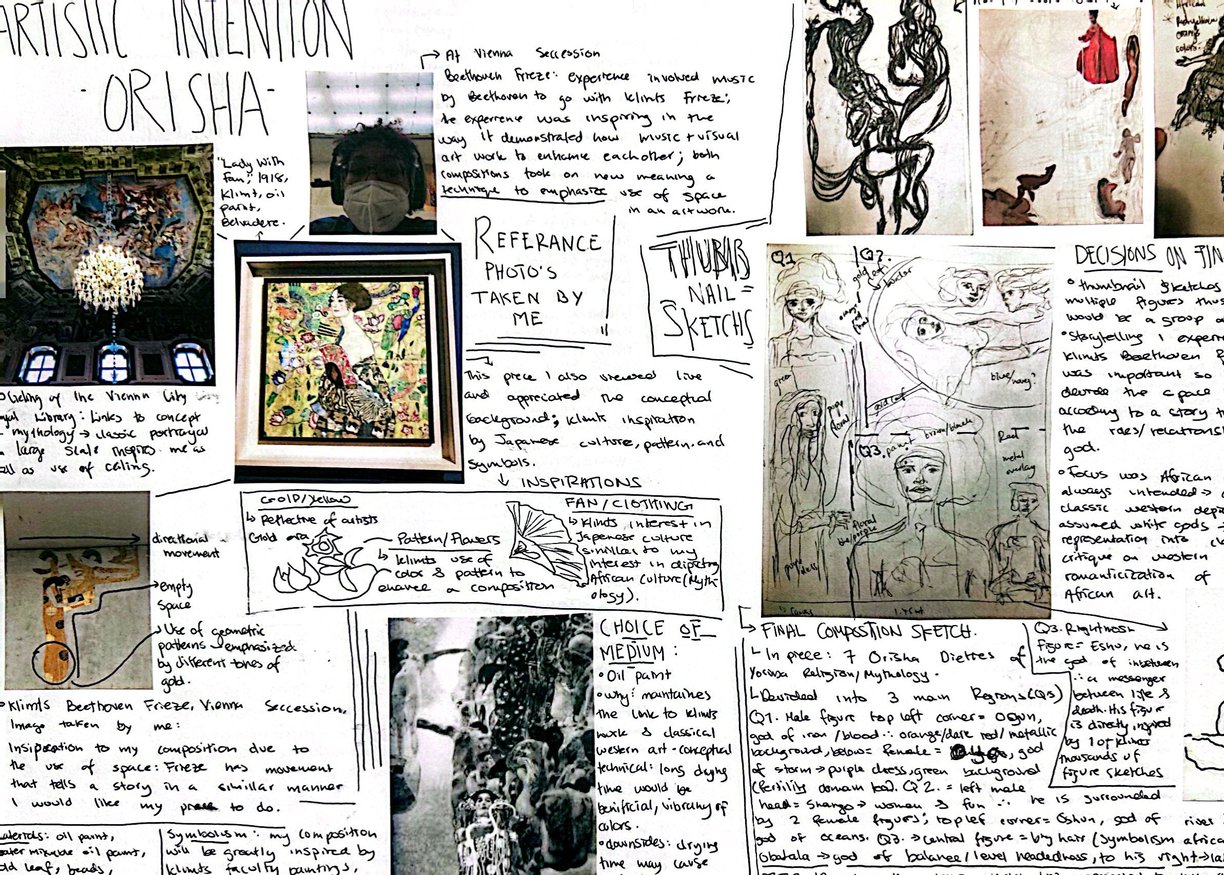 ARTISTIC INTENTION
- ORISHA -
→ At Vienna Seccession
Beethoven Frieze: experience involved music
by Beethoven to go with Klimts Frieze;
the experience was inspiring in the
way it demonstrated how music + visual
art work to enhance eachother; both
compositions took on new meaning a
technique to emphasize use of space
in an artwork.
"Lady With
Fan," 1918,
Klimt, oil
paint,
Belvadere.
REFERANCE
PHOTO'S
TAKEN BY
ME
THUMB
NAIL =
SKETCHS
This piece I also viewed live
and appreciated the conceptual
background; Klimts inspiration
by Japanese culture, pattern, and
symbols.
↓ INSPIRATIONS
Ceiling of the Vienna City
Library: Links to concept
mythology → classic portrayal
large scale inspires me as
as use of ceiling.
GOLD/Yellow
↳ Reflective of artists
Gold era
Pattern/Flowers
↳ Klimts use of
color & pattern to
enhance a composition
FAN/CLOTHING
↳ Klimts interest in
Japenese culture
simillar to my
interest in depicting
African culture (Myth
ology).
directional
movement
empty
space
Use of geometric
patterns → emphasized
by different tones of
gold.
• Klimts Beethoven Frieze, Vienna Seccession,
Image taken by me:
Insiperation to my composition due to
the use of space: Frieze has movement
that tells a story in a simillar manner
I would like my piece to do.
Materials: oil paint,
oil paint,
gold leaf, beads,
Symbolism: my composition
will be greatly inspired by
Klimts faculty paintings,
CHOICE OF
MEDIUM:
• Oil paint
• why: maintaines
the link to Klimts
work & classical
western art - conceptual
technical: long drying
time would be
benificial, vibrancy of
colors.
• downsides: drying
time may cause
Q1
Q2.
gold leaf
green
blue/navy?
gold leaf
Q3.
brown/black
Red
metal
overlay
floral
DECISIONS ON FIN
• thumbnail sketches
multiple figures thus
would be a group
• Storytelling I exper
Klimts Beethoven F
was important so
devide the space
according to a story th
the roles/relationsh
god.
• Focus was African
always intended →
classic western depi
assumed white gods
representation into
critique on western
romanticization of
African art.
→ FINAL COMPOSTION SKETCH.
↳ In piece: 7 Orisha Dietres of
Yoruva Religion/Mythology.
↳ Devided into 3 main Regions (Qs)
Q1. Male figure top left corner = Ogun,
god of iron/blood ∴ orange/dark red/metallic
background, below = female = Oya, god
of storm → purple dress, green background
(fertility domain too). Q2. = left male
head = Shango → women & fun ∴ he is surrounded
by 2 female figures; top left corner = Oshun, god of river
god of oceans. Q3. → central figure = big hair (symbolism africa
Obatala → god of balance/level headedness, to his right →
Q3. Rightmost
figure = Eshu, he is
the god of inbetween
∴ a messenger
between life &
death. His figure
is directly inspired
by 1 of Klimts
thousands of
figure sketches